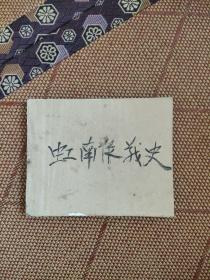 虹南作战史